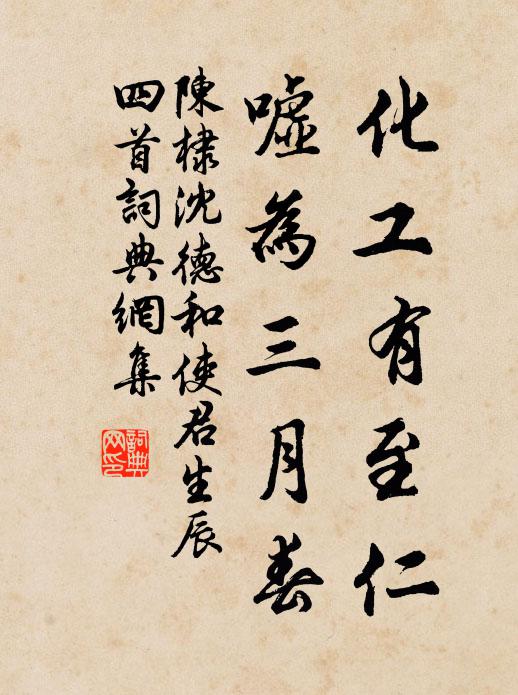 化工有至仁
噓為三月春
陳棣沈德和使君生辰
四首詞典網集
詞典
网印